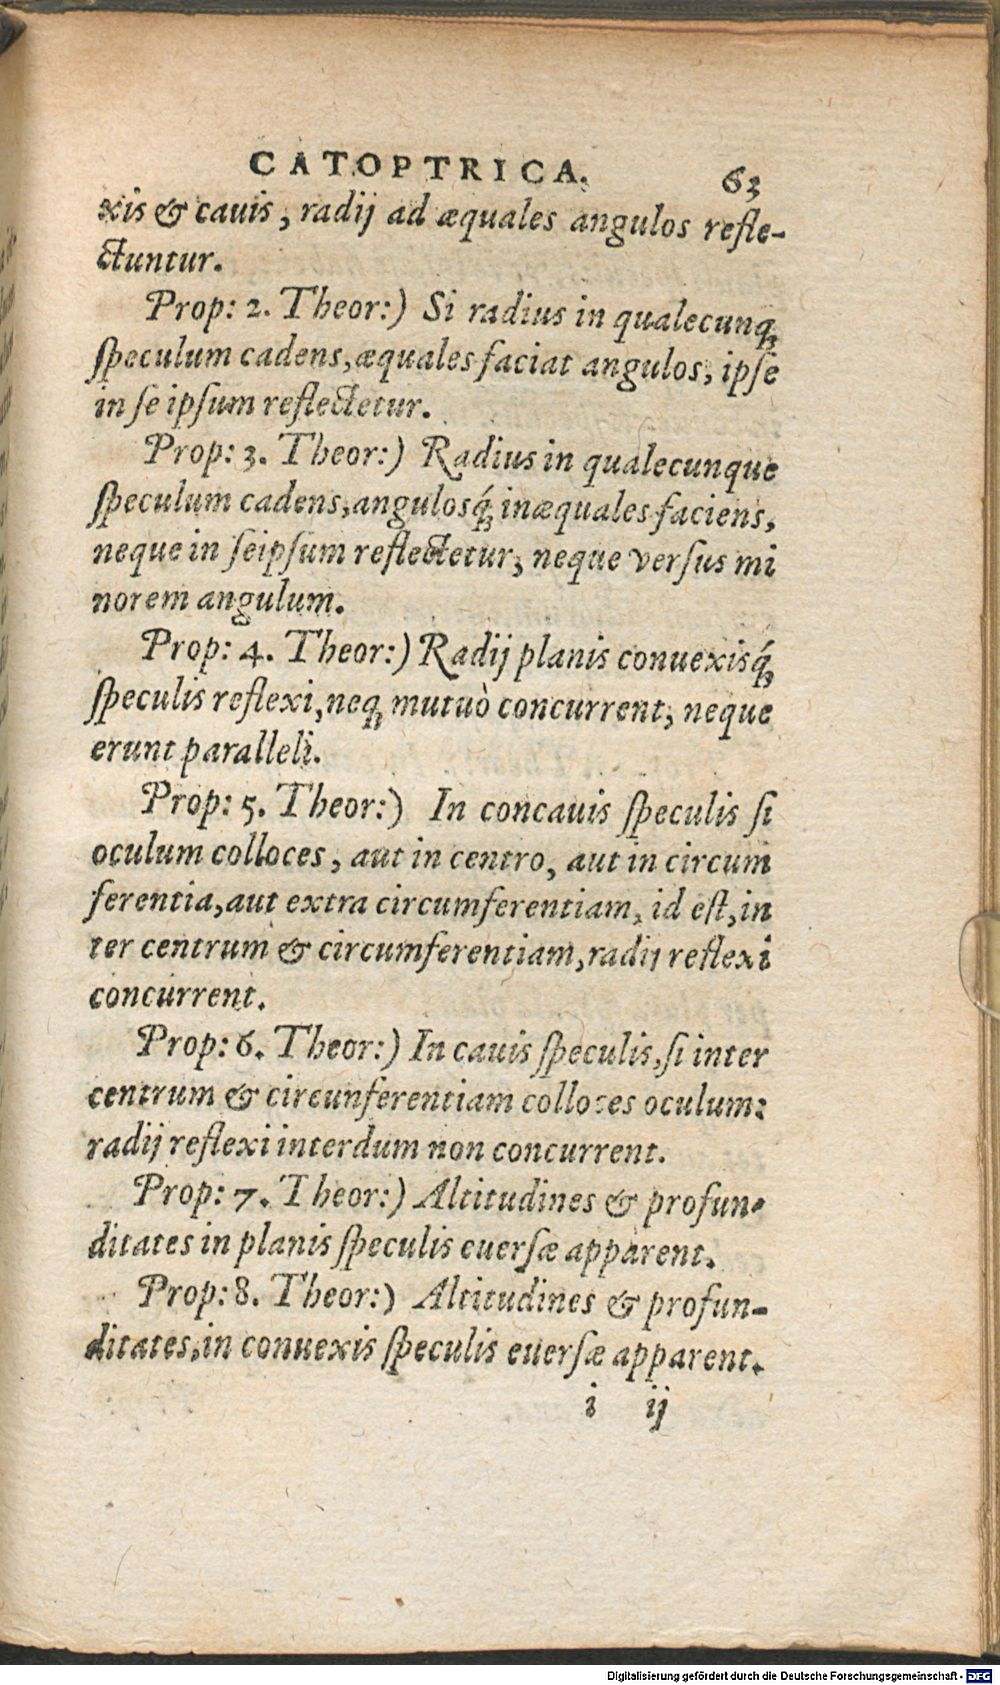 CATOPTRICA. 63
xis & cauis, radij ad æquales angulos refle-
ctuntur.
Prop: 2. Theor:) Si radius in qualecunq̃
ſpeculum cadens, æquales faciat angulos, ipſe
in ſe ipſum reflectetur.
Prop: 3. Theor:) Radius in qualecunque
ſpeculum cadens, angulosq́ inæquales faciens,
neque in ſeipſum reflectetur, neque verſus mi
norem angulum.
Prop: 4. Theor:) Radij planis conuexisq́
ſpeculis reflexi, neq; mutuò concurrent, neque
erunt paralleli.
Prop: 5. Theor:) In concauis ſpeculis ſi
oculum colloces, aut in centro, aut in circum
ferentia, aut extra circumferentiam, id eſt, in
ter centrum & circumferentiam, radij reflexi
concurrent.
Prop: 6. Theor:) In cauis ſpeculis, ſi inter
centrum & circunferentiam colloces oculum:
radij reflexi interdum non concurrent.
Prop: 7. Theor:) Altitudines & profun-
ditates in planis ſpeculis euerſæ apparent.
Prop: 8. Theor:) Altitudines & profun-
ditates, in conuexis ſpeculis euerſæ apparent.
i ij
Digitalisierung gefördert durch die Deutsche Forschungsgemeinschaft - DFG